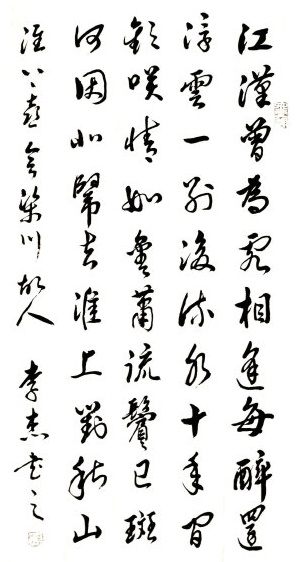 江漢曾為客相逢每醉還
浮雲一別後流水十年間
歡咲情如舊蕭疏鬢已斑
何因北歸去淮上對秋山
淮上喜會梁川故人 李杰書之